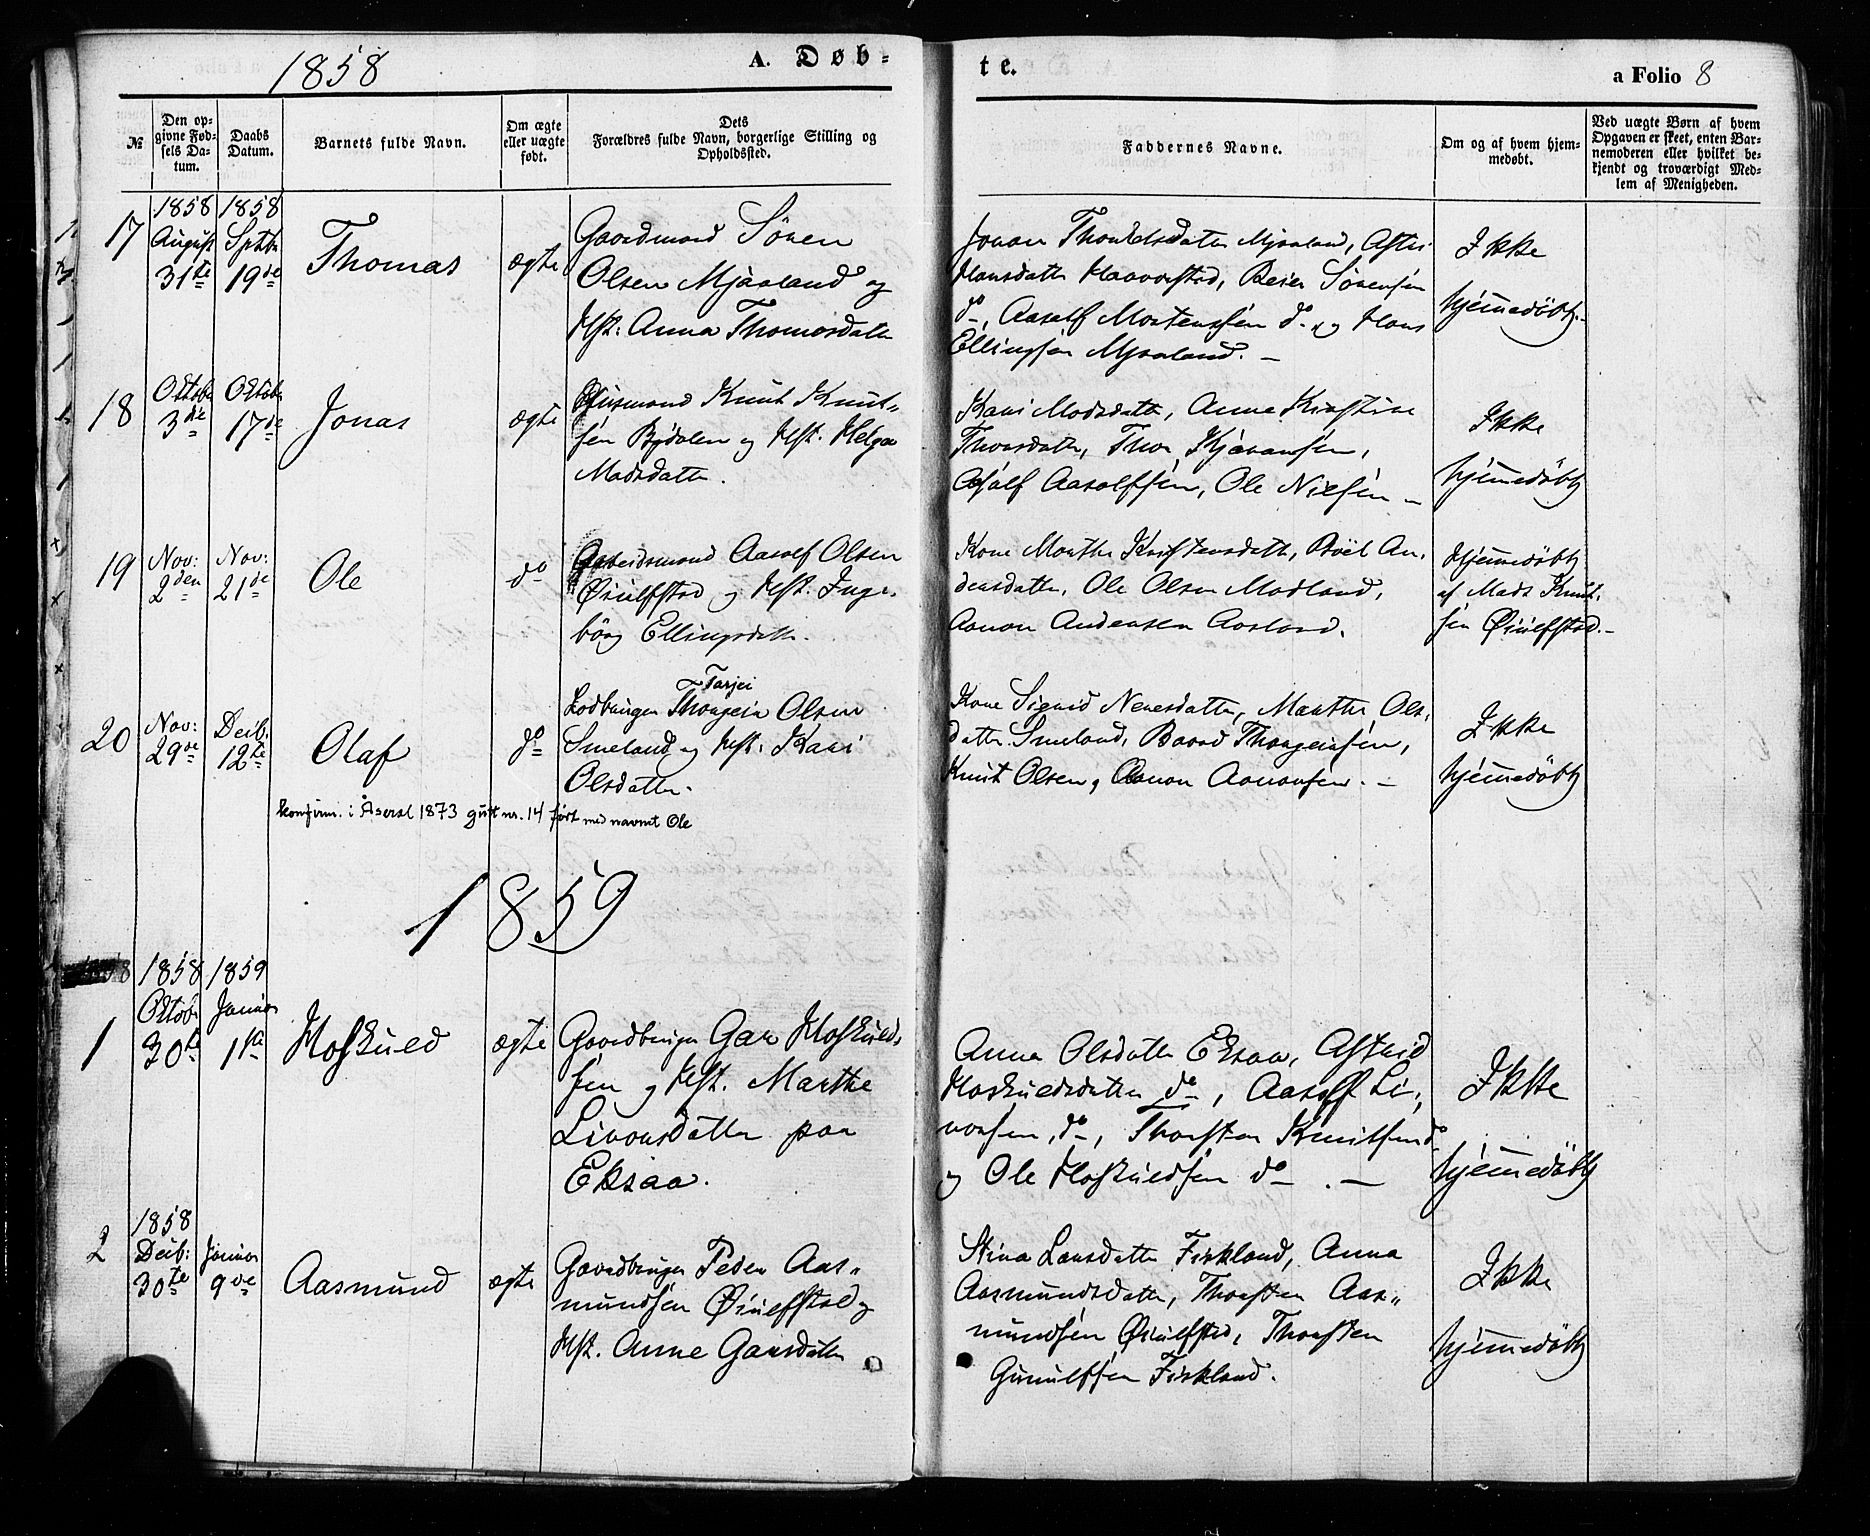 1858
A. Døb-
te.
a Folio 8
№
Den op-
givne Fød-
sels Da-
tum.
Daabs
Datum.
Barnets fulde Navn.
Om ægte
eller uægte
født.
Dets
Forældres fulde Navn, borgerlige Stilling og
Opholdssted.
Faddernes Navne.
Om og af hvem hjem-
medøbt.
Ved uægte Børn af hvem
Opgaven er skeet, enten Bar-
nemoderen eller hvilket be-
kjendt og troværdigt Med-
lem af Menigheden.
17
1858
August
31te
1858
Septbr
19de
Thomas
ægte
Gaardmand Sören
Olsen Mjaaland og
Hst. Anna Thomasdatter
Mjaaland, Astri
Hansdatter Haaverstad, Sörensen
do, Aasolf Mortensen do. og Hans
Ellingsen Mjaaland. –
Ikke
hjemmedöbt.
18
Oktober
3die
Oktober
17de
Jonas
ægte
Huusmand Knut Knut-
sen og Hst. Helga
Madsdatter.
Kari Madsdatter, Anne Kirstine
Thorsdatter, Thor
Aasolfsen, Ole Nielsen –
Ikke
hjemmedöbt
19
Nov:
2den
Nov:
21de
Ole
do
Arbeidsmand Aasolf Olsen
Öiulfstad og Hst. Inge-
börg Ellingsdatter.
Kone Marthe Kristensdatter, Boël An-
densdatter, Ole Olsen Modland,
Aanon Andersen Aasland.
Hjemmedöbt
af Mads Knut-
sen Öiulfstad.–
20
Nov:
29de
Decb.
12te
Olaf
do
Tarjei
Thorgeir Olsen
Smeland og Hst. Kari
Olsdatter.
Kone Sigrid Marthe Ols-
datter Smeland, Baard Thorgeirsen,
Knut Olsen, Aanon Aanonsen. –
Ikke
hjemmedöbt
konfirm. i Åseral 1873 gutt nr. 14 ført med navnet Ole
1859
1
1858
Oktobr
30te
1859
Januar
1ste
Hoskuld
ægte
Gaardbruger Gar Hoskuld-
sen og Hst. Marthe
Livorsdatter paa
Eksaa.
Anna Olsdatter Eksaa, Astrid
Hoskuldsdatter do, Aasolf Li-
vorsen, do, Thorsten Knutsen do
og Ole Hoskuldsen do. –
Ikke
hjemmedöbt
2
1858
Decb:
30te
Januar
9de
Aasmund
ægte
Gaardbruger Peder Aas-
mundsen Öiulfstad og
Hst. Anne Garsdatter
Stina Larsdatter Fiskland, Anna
Aasmundsdatter, Thorsten Aas-
mundsen Öiulfstad, Thorsten
Gunulfsen Fiskland.
Ikke
hjemmedöbt